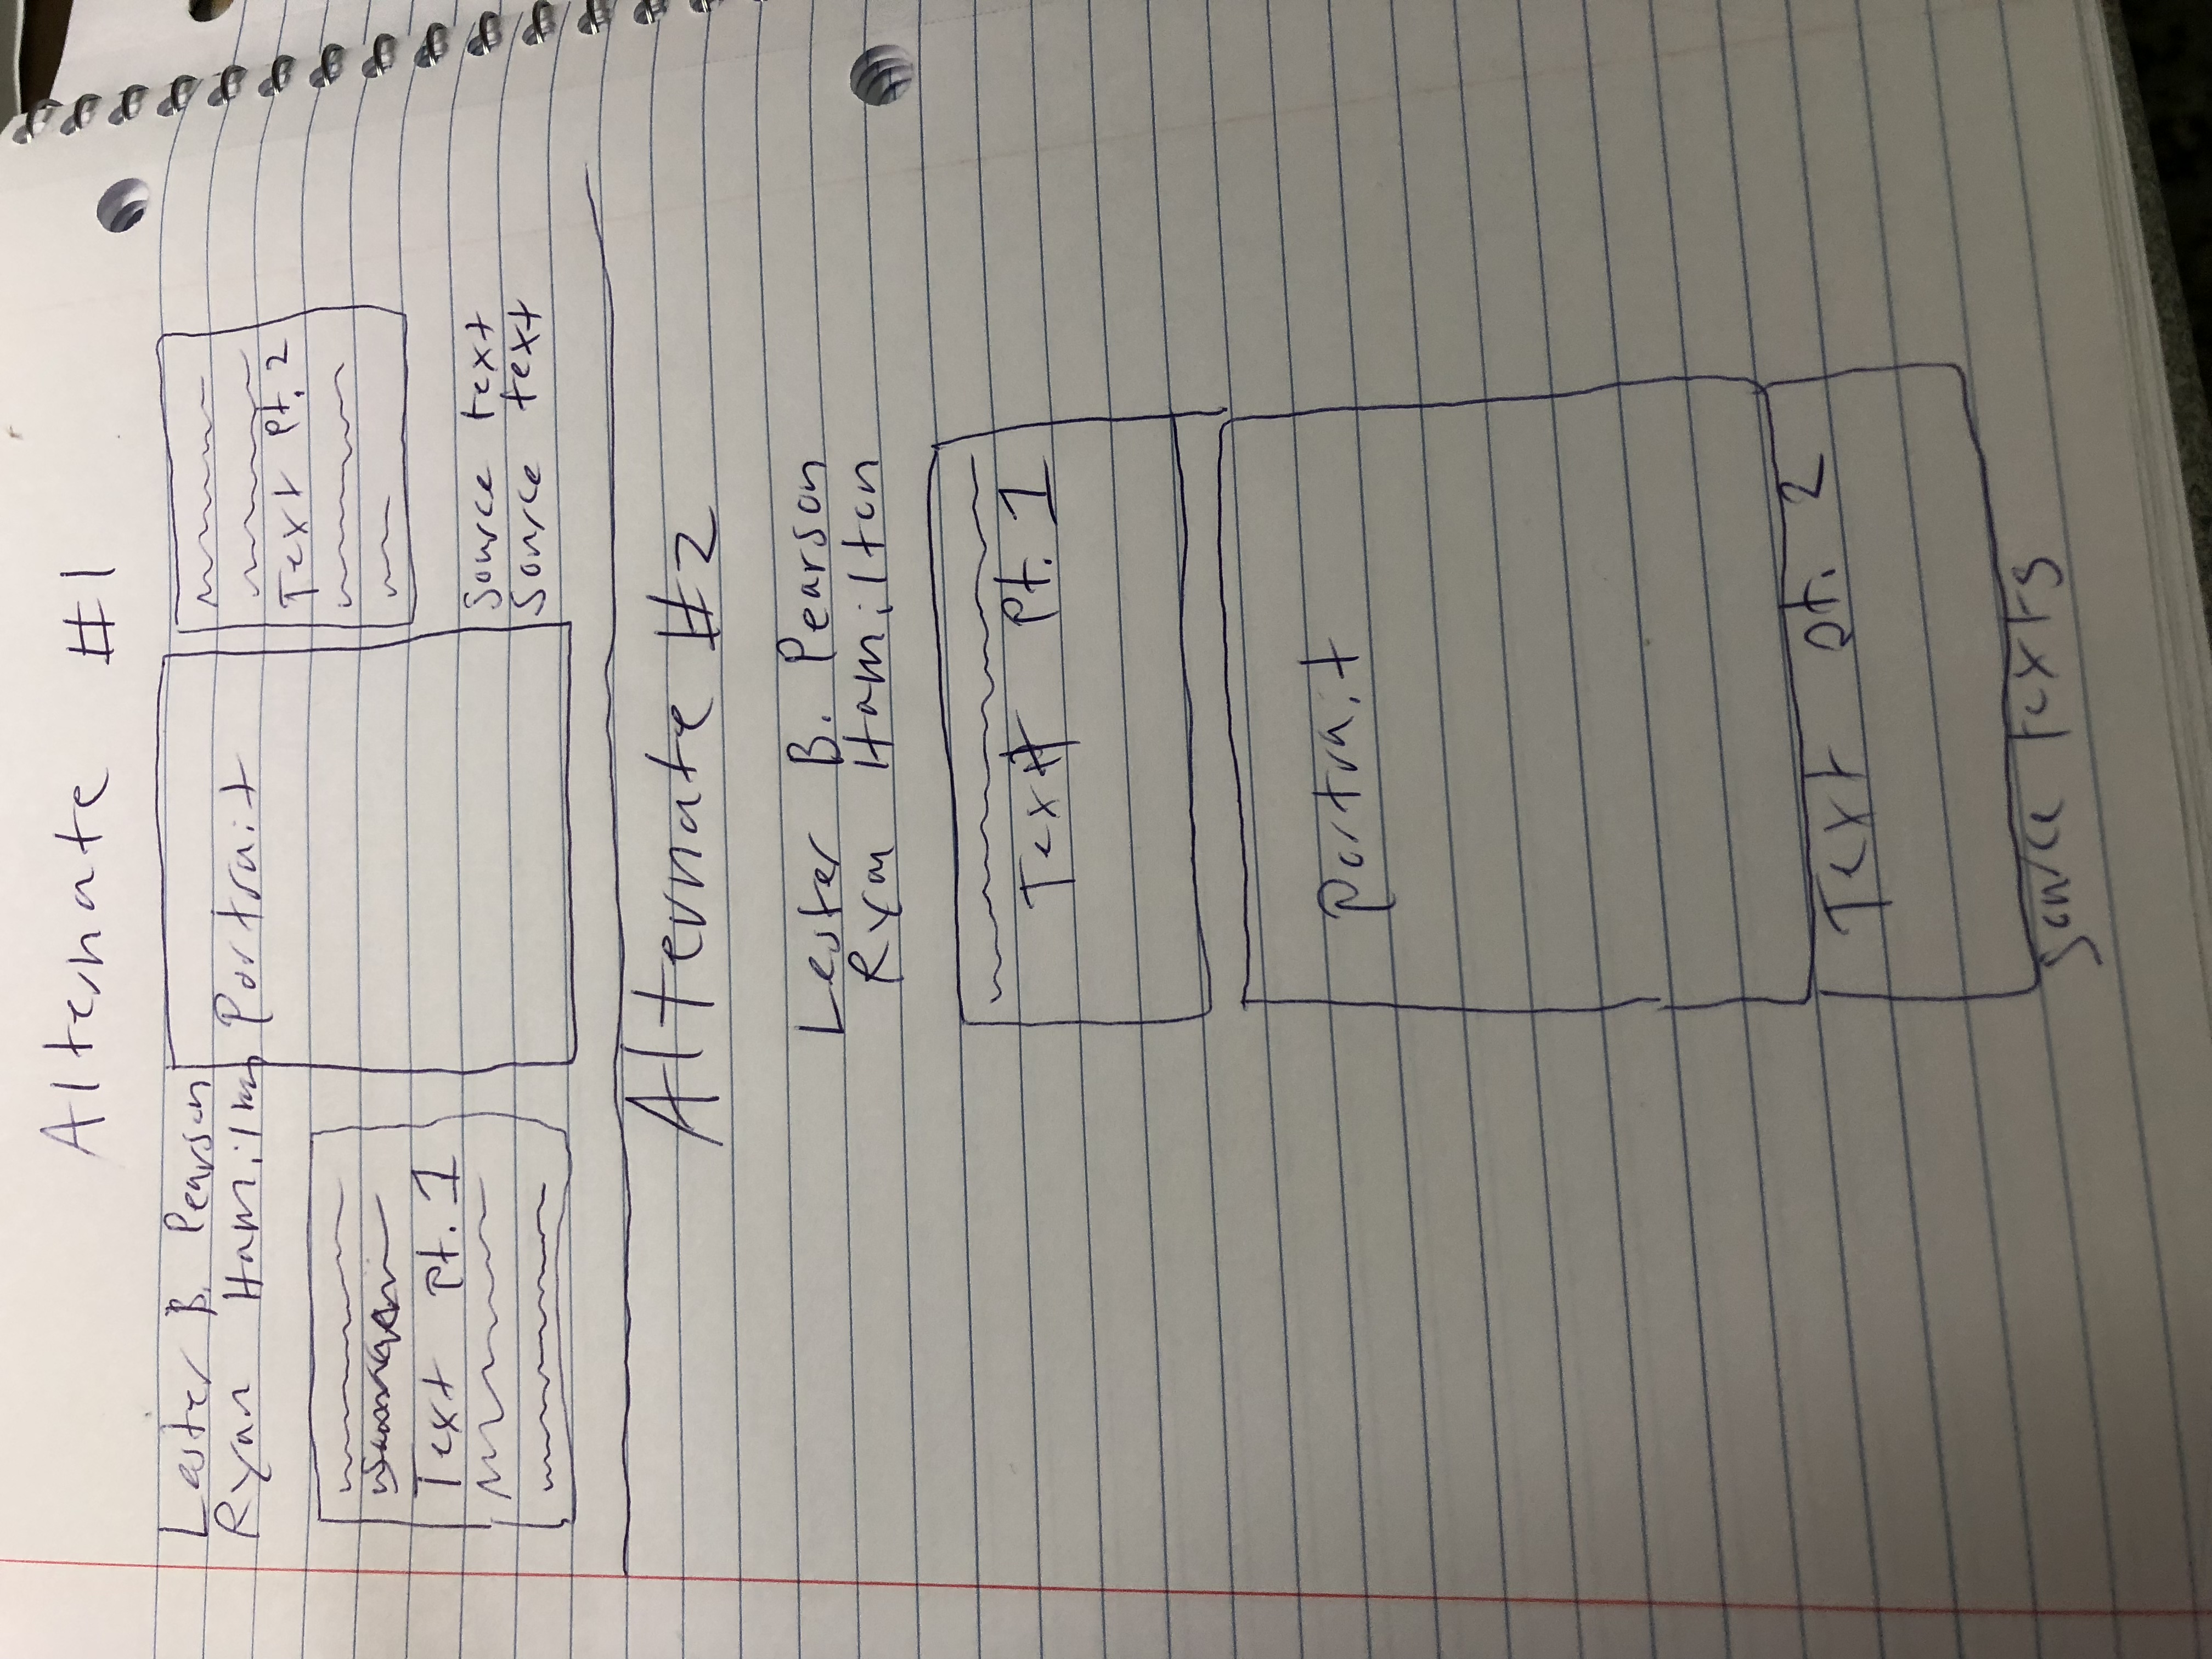 Alternate #1
Lester B. Pearson
Ryan Hamilton
Text pt. 1
Portrait
Text pt. 2
Source text
Source text
Alternate #2
Lester B. Pearson
Ryan Hamilton
Text pt. 1
Portrait
Text pt. 2
Source texts